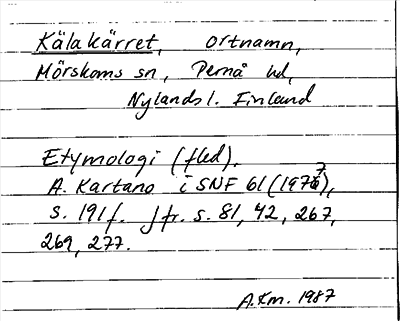 Källakärret, ortnamn,
Mörskoms sn, Pernå hd,
Nylands l. Finland
Etymologi (fled).
A. Kartano i SNF 61 (1977),
s. 191 f. Jfr. s. 81, 42, 267,
269, 277.
A.Km. 1987